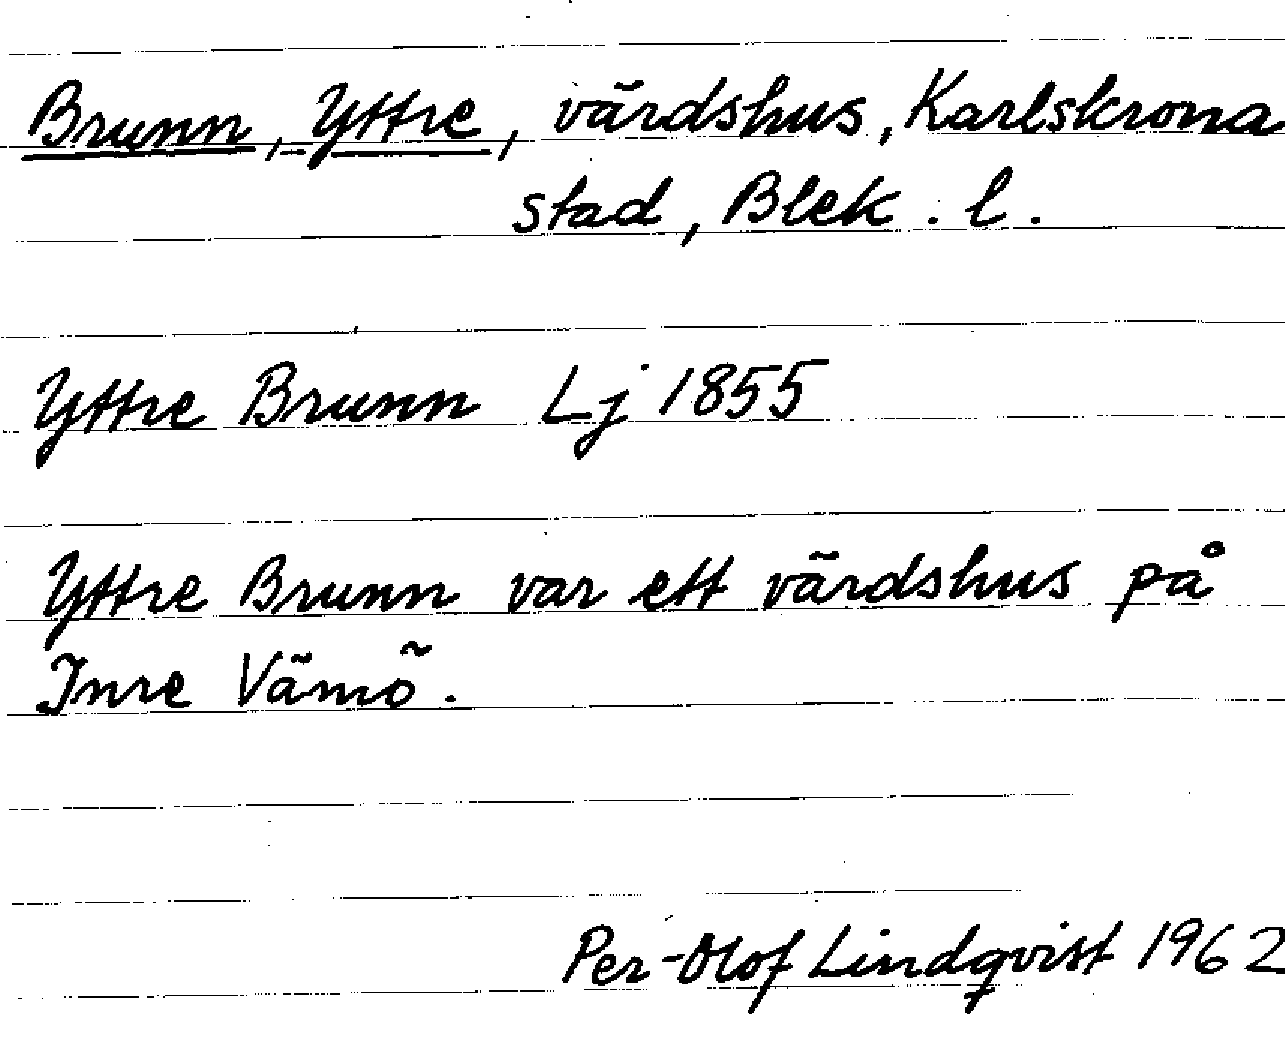 Brunn, Yttre, värdshus, Karlskrona
stad, Blek. l.
Yttre Brunn Lj 1855
Yttre Brunn var ett värdshus på
Inre Vämö.
Per-Olof Lindqvist 1962